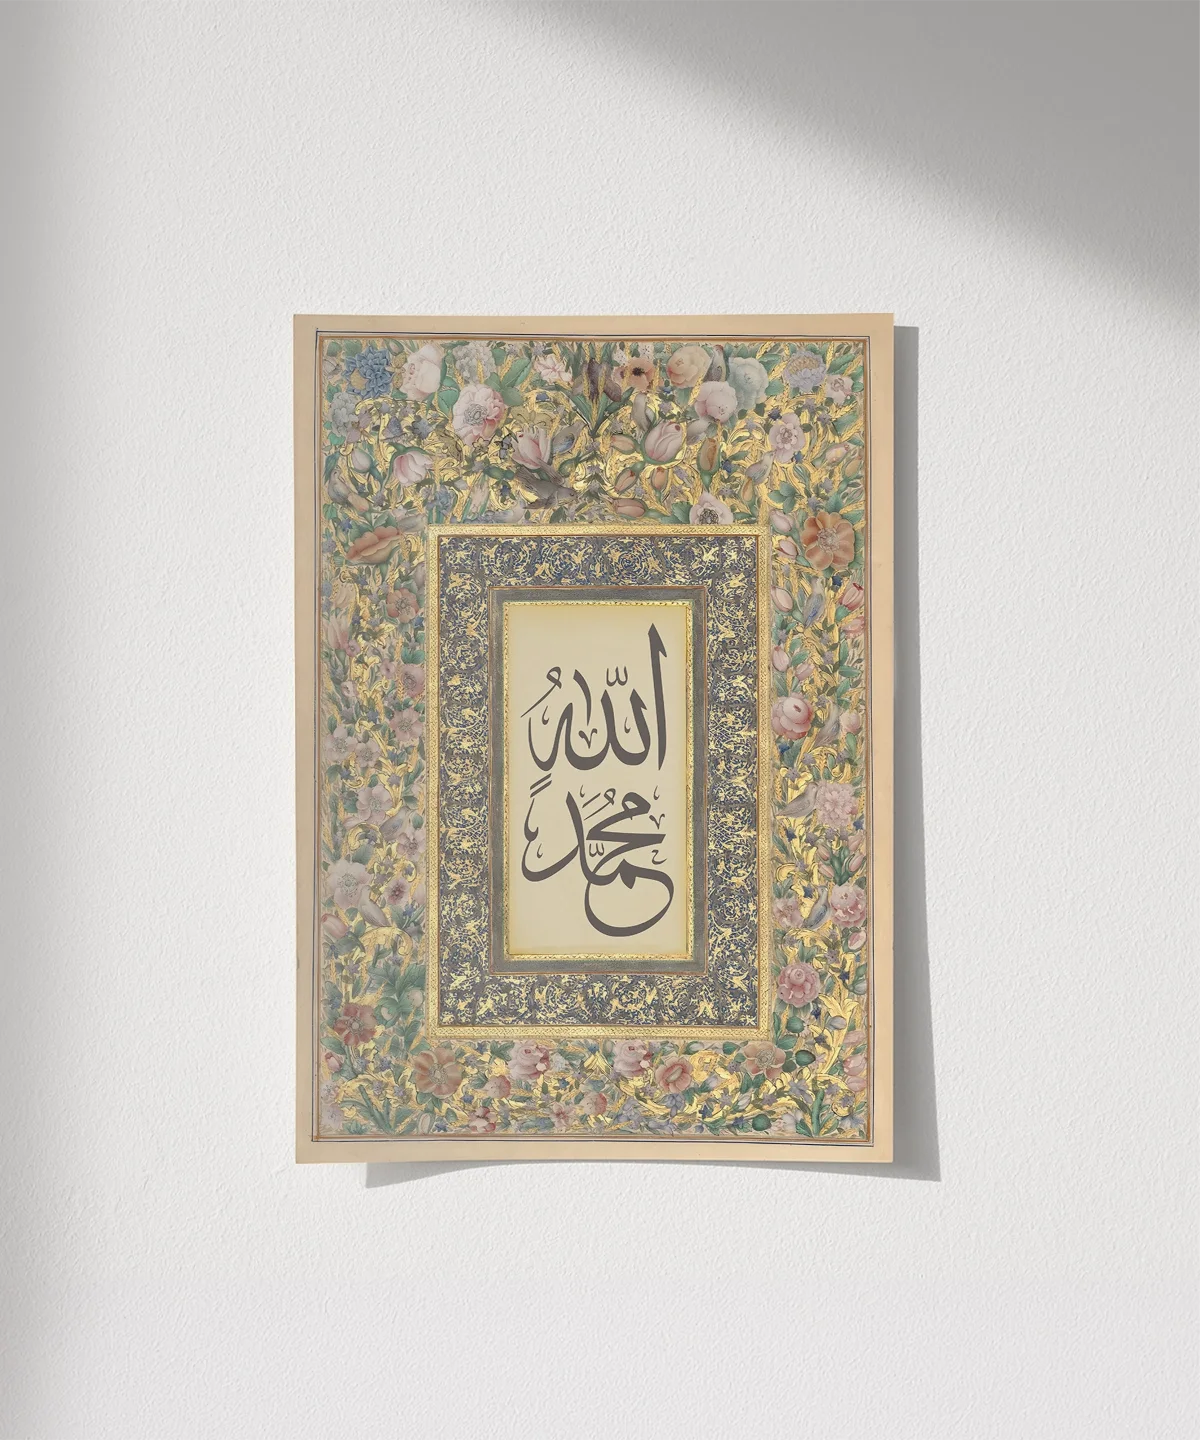 اللهُ
مُحَمَّدٌ